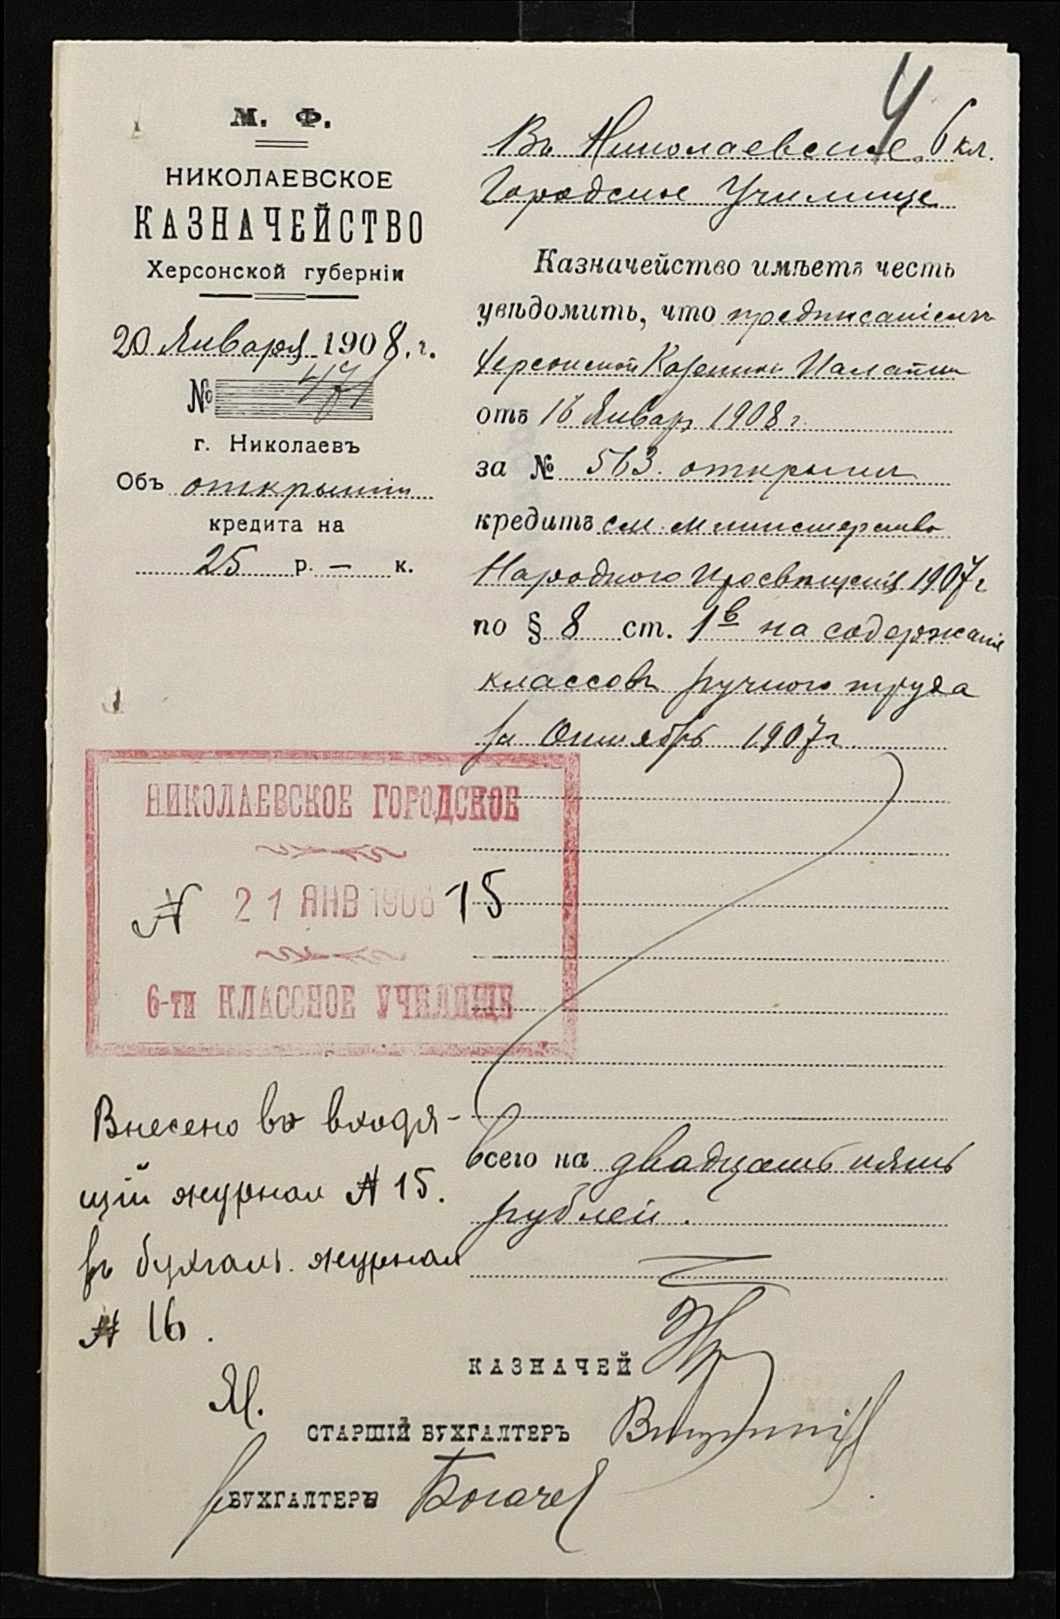 4
М. Ф.
НИКОЛАЕВСКОЕ
КАЗНАЧЕЙСТВО
Херсонской губерніи
20 Января 1908 г.
№ 471
г. Николаевъ
Объ открытіи
кредита на
25 р. — к.
Въ Николаевское 6 кл.
Городское Училище
Казначейство имѣетъ честь
увѣдомить, что предписаніемъ
Херсонской Казенной Палаты
отъ 16 Январ 1908 г.
за № 563 открытъ
кредитъ см. министерства
Народного Просвѣщенія 1907 г
по § 8 ст. 1в на содержаніе
классовъ ручного труда
за Октябрь 1907 г
НИКОЛАЕВСКОЕ ГОРОДСКОЕ
№ 21 ЯНВ 1908 15
6-ти КЛАССНОЕ УЧИЛИЩЕ
всего на двадцать пять
рублей.
Внесено во входя-
щій журнал № 15.
въ бухгалт. журнал
№ 16.
КАЗНАЧЕЙ
СТАРШІЙ БУХГАЛТЕРЪ
БУХГАЛТЕРЪ Богаче